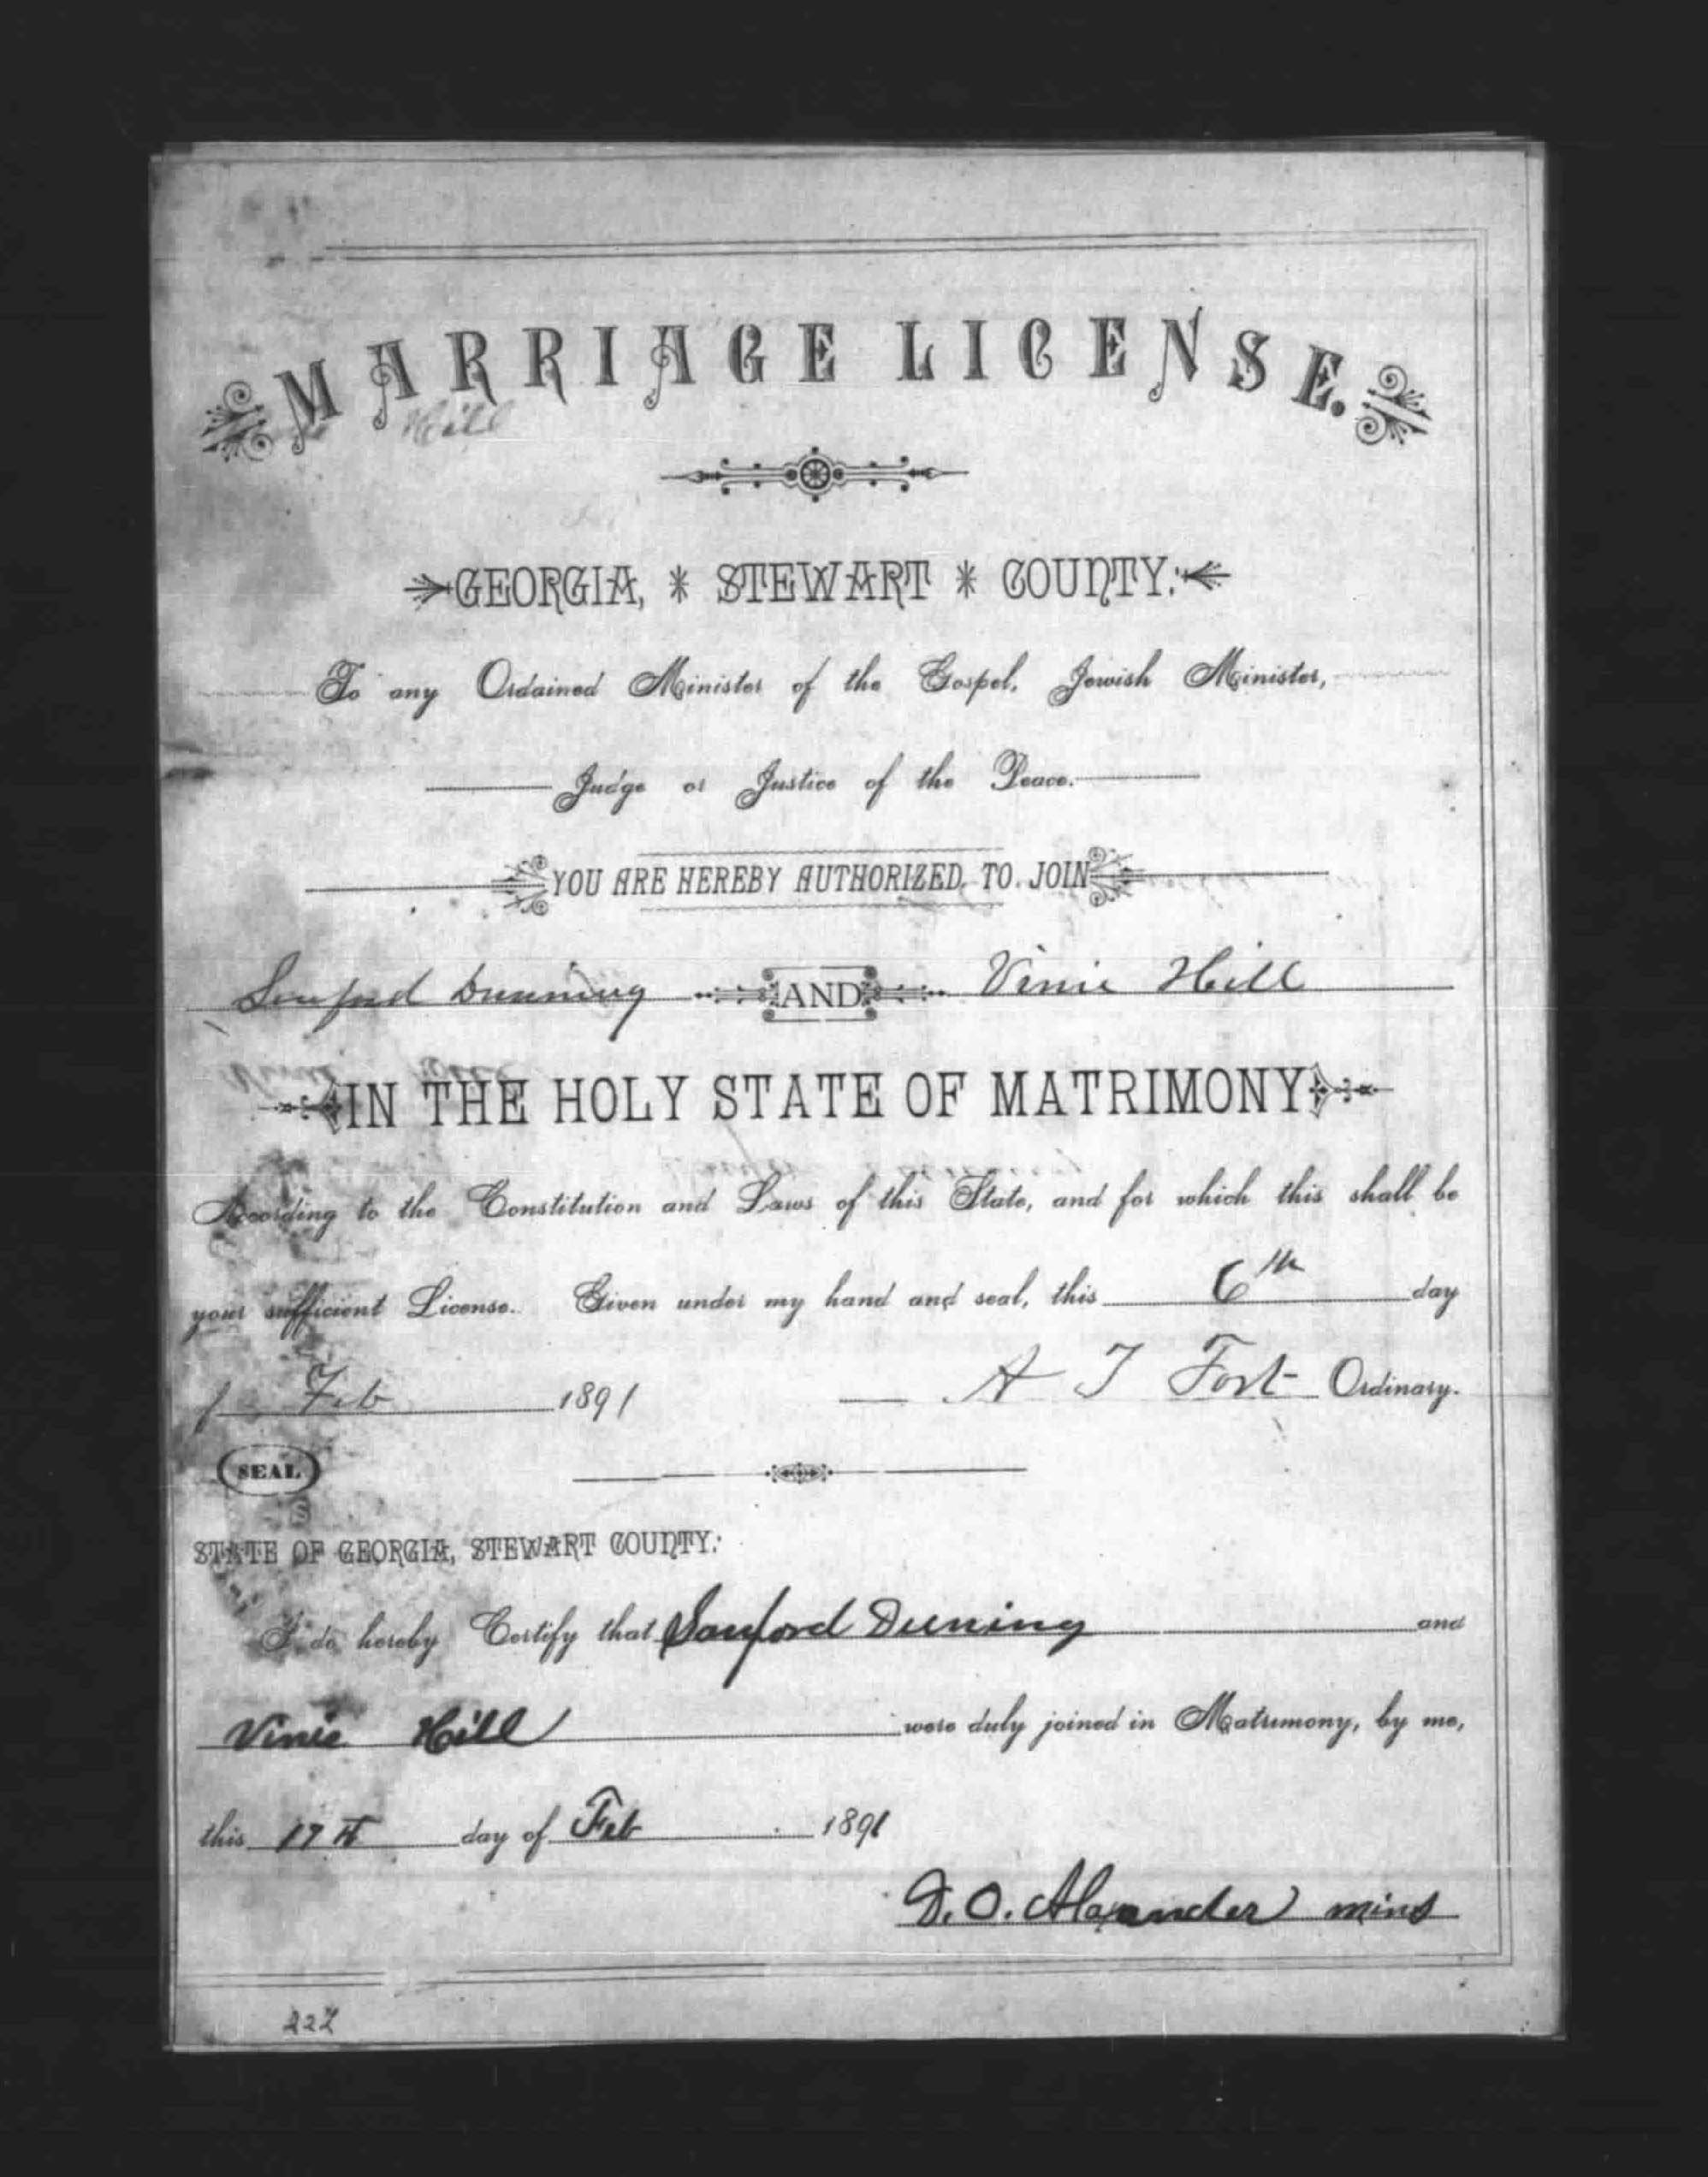 MARRIAGE LICENSE.
Hill
GEORGIA, * STEWART * COUNTY:
To any Ordained Minister of the Gospel, Jewish Minister,
Judge or Justice of the Peace.
YOU ARE HEREBY AUTHORIZED TO JOIN
Sanford Dunning AND Vinie Hill
IN THE HOLY STATE OF MATRIMONY
According to the Constitution and Laws of this State, and for which this shall be
your sufficient License. Given under my hand and seal, this 6th day
f Feb 1891 A J Fort Ordinary.
SEAL
STATE OF GEORGIA, STEWART COUNTY:
I do hereby Certify that Sanford Duning and
Vinie Hill were duly joined in Matrimony, by me,
this 17th day of Feb 1891
D. O. Alaxander mins
227